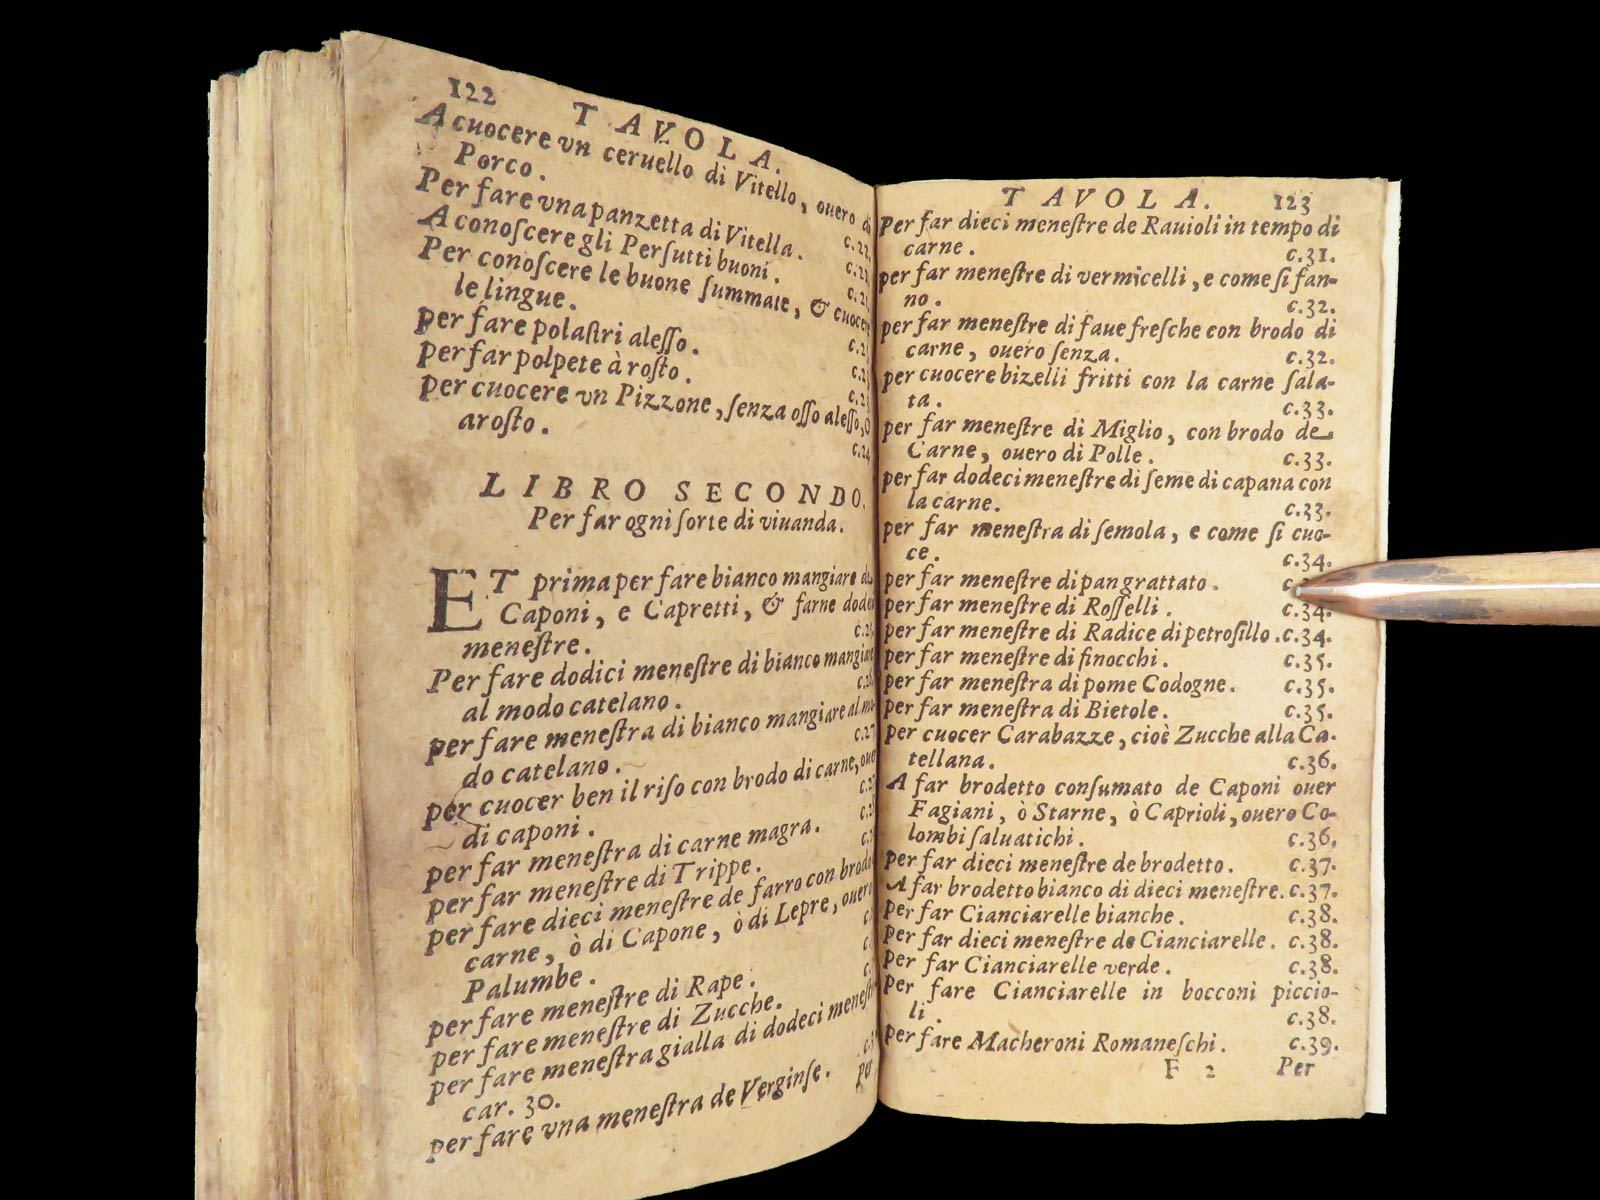 122
TAVOLA.
A cuocere vn ceruello di Vitello, ouero di
Porco. c.22.
Per fare vna panzetta di Vitella.
A conoſcere gli Perſutti buoni.
Per conoſcere le buone ſummate, & cuocere
le lingue.
per fare polaſtri aleſſo.
per far polpete à roſto.
per cuocere vn Pizzone, ſenza oſſo aleſſo, ò
aroſto. c.24
LIBRO SECONDO.
Per far ogni ſorte di viuanda.
ET prima per fare bianco mangiare de
Caponi, e Capretti, & farne dodeci
meneſtre.
Per fare dodici meneſtre di bianco mangiare
al modo catelano.
per fare meneſtra di bianco mangiare al mo-
do catelano. c.27
per cuocer ben il riſo con brodo di carne, ouer
di caponi.
per far meneſtra di carne magra.
per far meneſtre di Trippe.
per fare dieci meneſtre de farro con brodo
carne, ò di Capone, ò di Lepre, ouero
Palumbe.
per fare meneſtre di Rape.
per fare meneſtre di Zucche.
per fare meneſtra gialla di dodeci meneſtre
car. 30.
per fare vna meneſtra de Verginſe.
per
TAVOLA. 123
Per far dieci meneſtre de Rauioli in tempo di
carne. c.31.
per far meneſtre di vermicelli, e come ſi fan-
no. c.32.
per far meneſtre di faue freſche con brodo di
carne, ouero ſenza. c.32.
per cuocere bizelli fritti con la carne ſala-
ta. c.33.
per far meneſtre di Miglio, con brodo de
Carne, ouero di Polle. c.33.
per far dodeci meneſtre di ſeme di capana con
la carne. c.33.
per far meneſtra di ſemola, e come ſi cuo-
ce. c.34.
per far meneſtre di pan grattato.
per far meneſtre di Roſſelli. c.34.
per far meneſtre di Radice di petroſillo. c.34.
per far meneſtre di finocchi. c.35.
per far meneſtra di pome Codogne. c.35.
per far meneſtra di Bietole. c.35.
per cuocer Carabazze, cioè Zucche alla Ca-
tellana. c.36.
A far brodetto conſumato de Caponi ouer
Fagiani, ò Starne, ò Caprioli, ouero Co-
lombi ſaluatichi. c.36.
per far dieci meneſtre de brodetto. c.37.
A far brodetto bianco di dieci meneſtre. c.37.
per far Cianciarelle bianche. c.38.
per far dieci meneſtre de Cianciarelle. c.38.
per far Cianciarelle verde. c.38.
per fare Cianciarelle in bocconi piccio-
li. c.38.
per fare Macheroni Romaneſchi. c.39.
F 2 Per